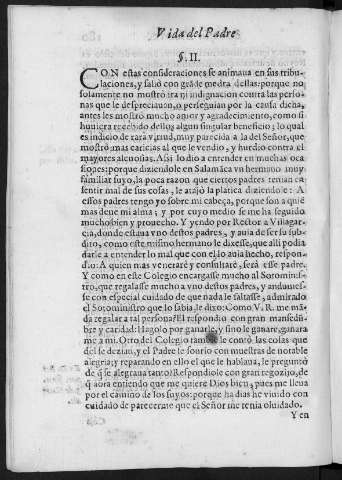 Vida del Padre
§. II.
CON estas consideraciones se animaua en sus tribu-
laciones, y salió con grãde medra dellas: porque no
solamente no mostró ira ni indignacion contra las perso-
nas que le despreciauan, o perseguian por la causa dicha,
antes les mostró mucho amor y agradecimiento, como si
huuiera recebido dellos algun singular beneficio; lo qual
es indicio de rara virtud, muy parecida a la del Señor, que
mostró mas caricias al que le vendio, y hurtò contra el
mayores aleuosias. Assi lo dio a entender en muchas oca-
siones: porque diziendole en Salamãca vn hermano muy
familiar suyo, la poca razon que ciertos padres tenian en
sentir mal de sus cosas, le atajó la platica diziendole: A
essos padres tengo yo sobre mi cabeça, porque son a quiẽ
mas deue mi alma; y por cuyo medio se me ha seguido
mucho bien y prouecho. Y yendo por Rector a Villagar-
cia, donde estaua vno destos padres, y auia de ser su sub-
dito, como este mismo hermano le dixesse, que alli podia
darle a entender lo mal que con ello auia hecho, respon-
dio: A quien mas veneraré y consultaré, será esse padre.
Y como en este Colegio encargasse mucho al Sotominis-
tro, que regalasse mucho a vno destos padres, y anduuies-
se con especial cuidado de que nada le faltasse, admirado
el Sotoministro que lo sabia, le dixo: Como V. R. me mã-
da regalar a tal persona? El respondio con gran mansedũ-
bre y caridad: Hagolo por ganarle, y sino le ganare, ganara
me a mi. Otro del Colegio le contó las cosas que
del se dezian, y el Padre se sonrio con muestras de notable
alegria; y reparando en ello el que le hablaua, le preguntó
de q̃ se alegraua tanto? Respondiole con gran regozijo, de
q̃ aora entiendo que me quiere Dios bien, pues me lleua
por el camino de los suyos: porque ha dias he viuido con
cuidado de parecerme que el Señor me tenia oluidado.
Y en